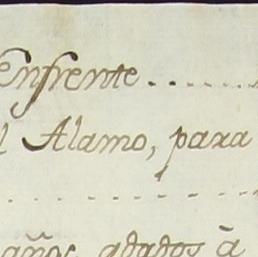 enfrente........
l Alamo, para
........
años, dados à